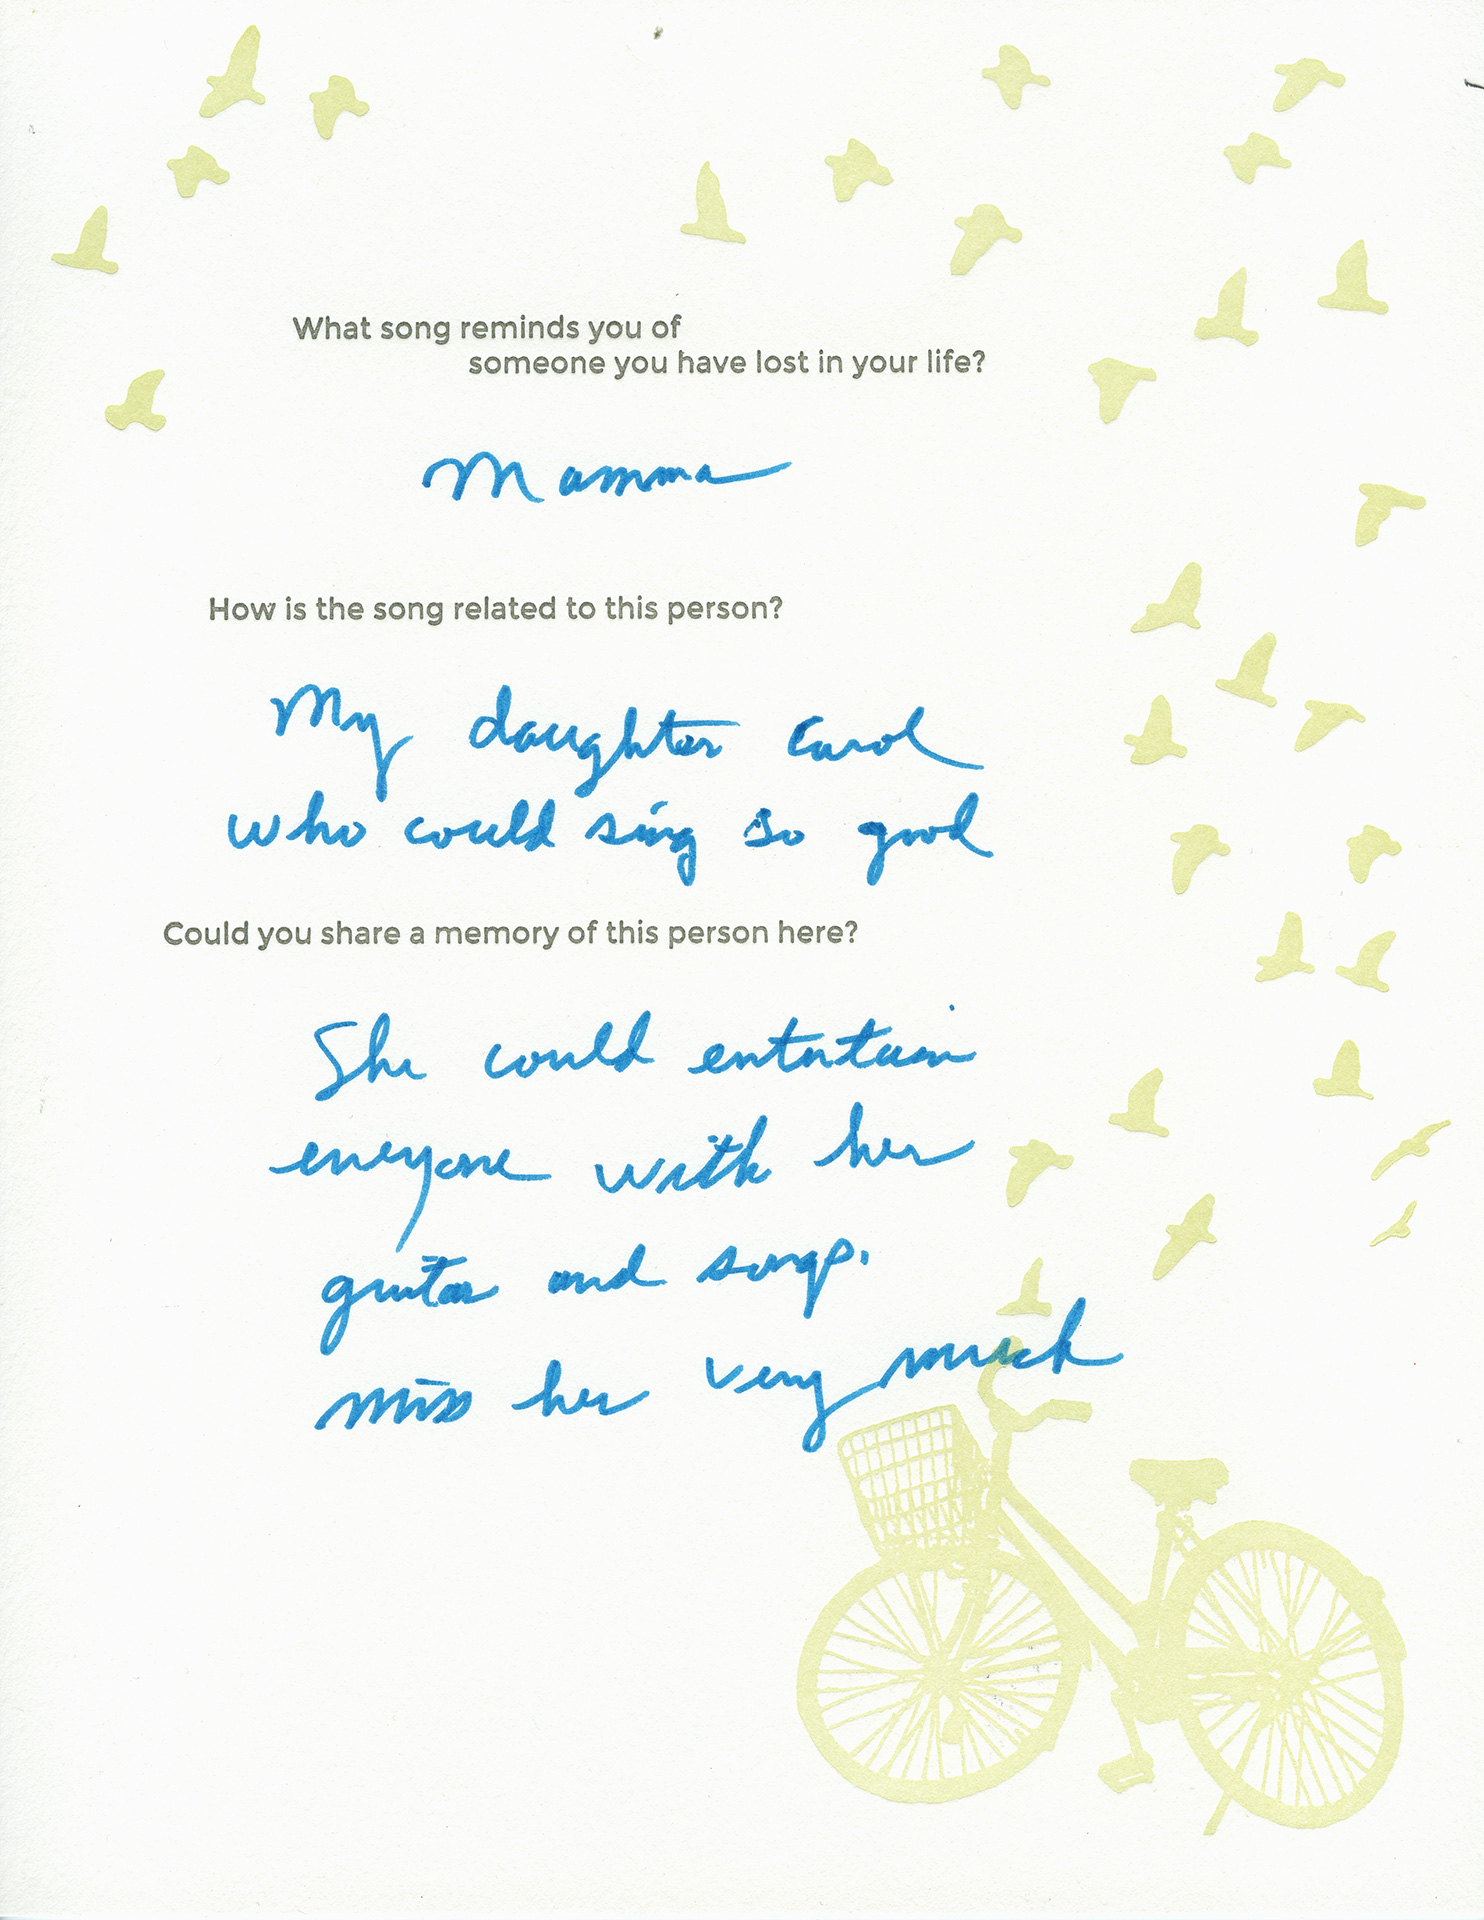 What song reminds you of
someone you have lost in your life?
Mamma
How is the song related to this person?
My daughter Carol
who could sing so good
Could you share a memory of this person here?
She could entertain
everyone with her
guitar and songs.
miss her very much